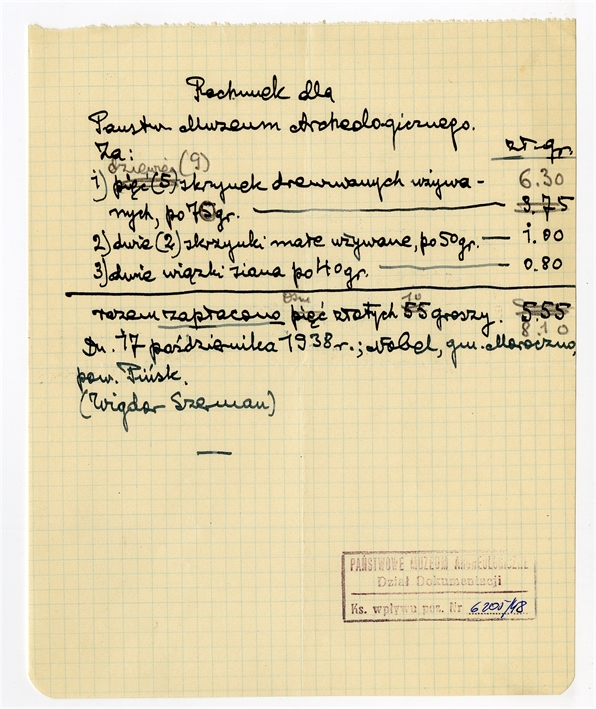 Rachunek dla
Państw. Muzeum Archeologicznego.
Za: zł. gr.
dziewięć (9)
1) pięć (5) skrzynek drewnianych używa- 6.30
nych, po 70 gr. — 3.75
2) dwie (2) skrzynki małe używane, po 50 gr. — 1.00
3) dwie wiązki siana po 40 gr. — 0.80
osm 10
razem zapłacono pięć złotych 55 groszy. 5.55
8.10
Dn. 17 października 1938 r.; Nobel, gm. Moroczno,
pow. Pińsk.
(Wigdor Szerman)
PAŃSTWOWE MUZEUM ARCHEOLOGICZNE
Dział Dokumentacji
Ks. wpływu poz. Nr 6200/48